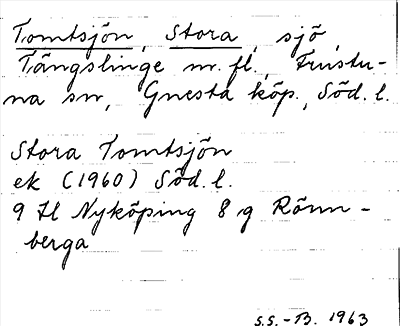 Tomtsjön, Stora, sjö,
Tängslinge m. fl., Frustu-
na sn, Gnesta köp., Söd. l.
Stora Tomtsjön
ek (1960) Söd. l.
9 H Nyköping 8 g Rönn-
berga
S.S.-B. 1963